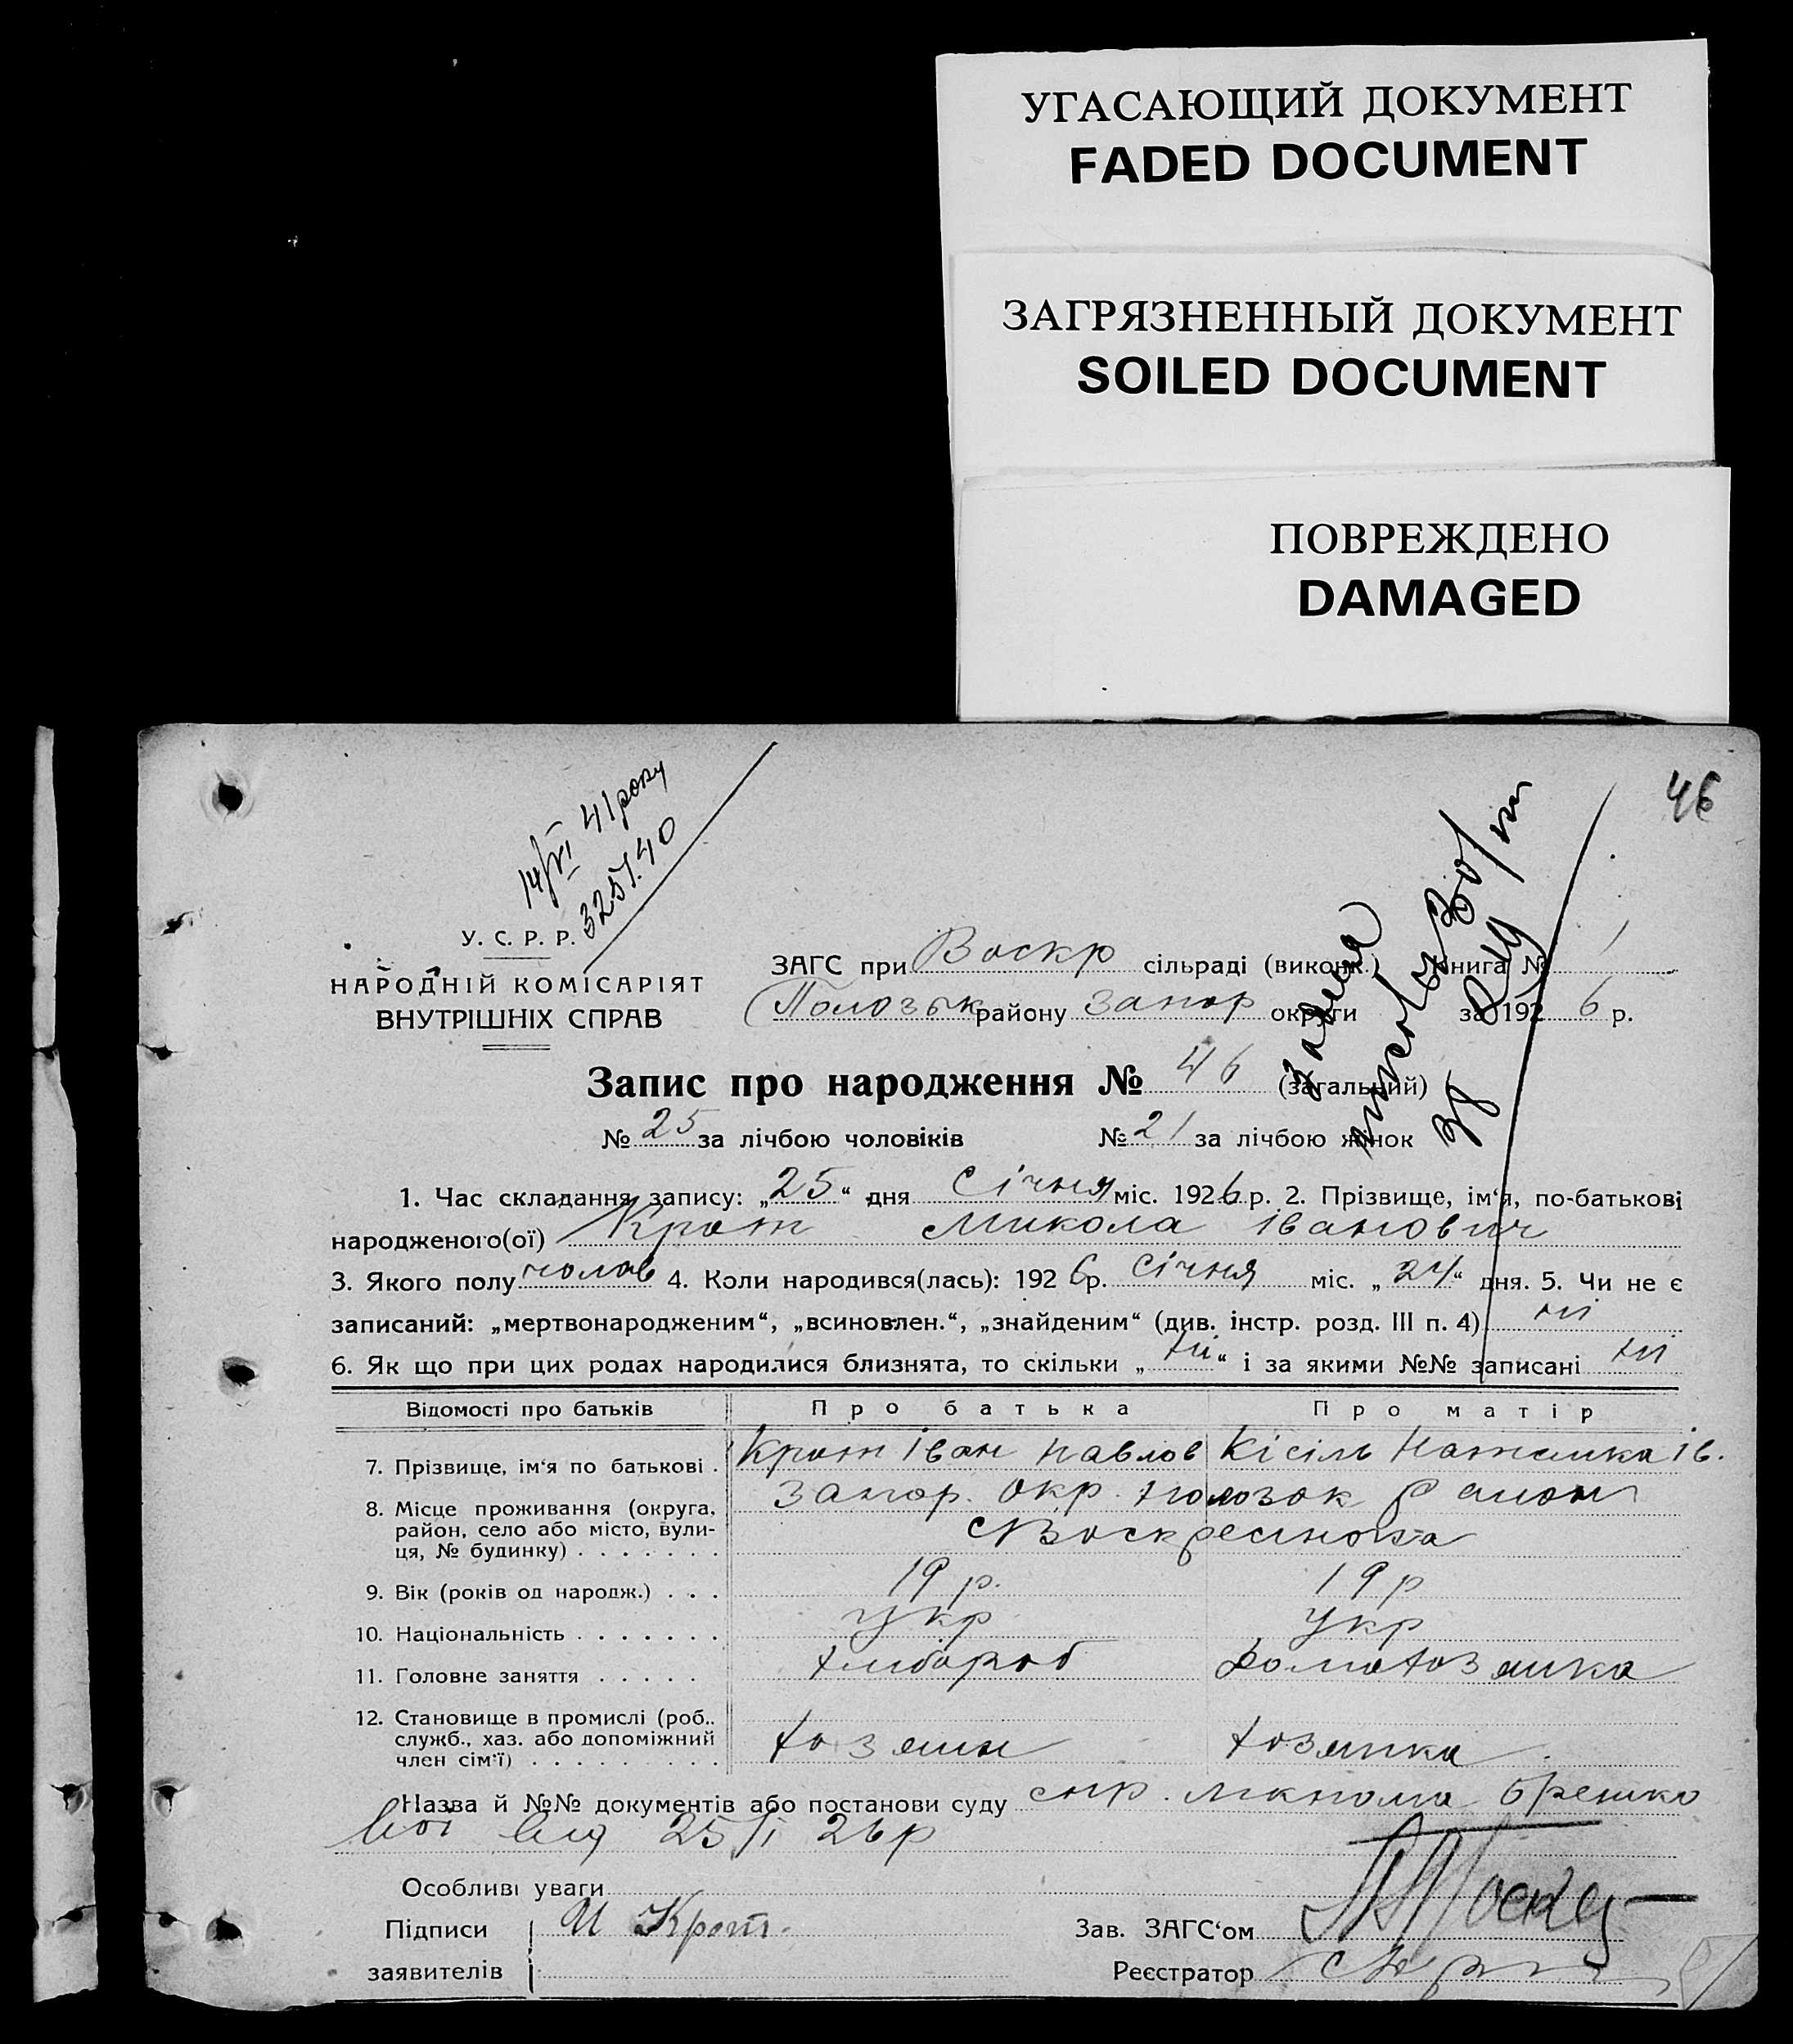 УГАСАЮЩИЙ ДОКУМЕНТ
FADED DOCUMENT
ЗАГРЯЗНЕННЫЙ ДОКУМЕНТ
SOILED DOCUMENT
ПОВРЕЖДЕНО
DAMAGED
46
14/VI 41 року
У. С. Р. Р.
НАРОДНІЙ КОМІСАРІЯТ
ВНУТРІШНІХ СПРАВ
ЗАГС при Воскр сільраді (виконк.) Книга № 1
Полозьк району Запор округи за 1926 р.
Запис про народження № 46 (загальний)
№ 25 за лічбою чоловіків № 21 за лічбою жінок
1. Час складання запису: „25“ дня Січня міс. 1926 р. 2. Прізвище, ім‘я, по-батькові
народженого(ої) Крот Микола Іванович
3. Якого полу чолов 4. Коли народився(лась): 1926 р. Січня міс. „24“ дня. 5. Чи не є
записаний: „мертвонародженим“, „всиновлен.“, „знайденим“ (див. інстр. розд. III п. 4) ні
6. Як що при цих родах народилися близнята, то скільки „ні“ і за якими №№ записані ні
Відомості про батьків Про батька Про матір
7. Прізвище, ім‘я по батькові . Крот Іван Павлов Кісіль Наталка Ів.
8. Місце проживання (округа, Запор. Окр. Полозьк Район
район, село або місто, вули-
ця, № будинку) . . . . . . . с Воскресінока
9. Вік (років од народж.) . . . 19 р. 19 р
10. Національність . . . . . . . Укр Укр
11. Головне заняття . . . . . хлібороб домохозяйка
12. Становище в промислі (роб..
служб., хаз. або допоміжний хозяин хозяйка
член сім‘ї) . . . . . . . . .
Назва й №№ документів або постанови суду
від 25/I 26 р
Особливі уваги
Підписи И Крот.
заявителів
Зав. ЗАГС‘ом
Реєстратор